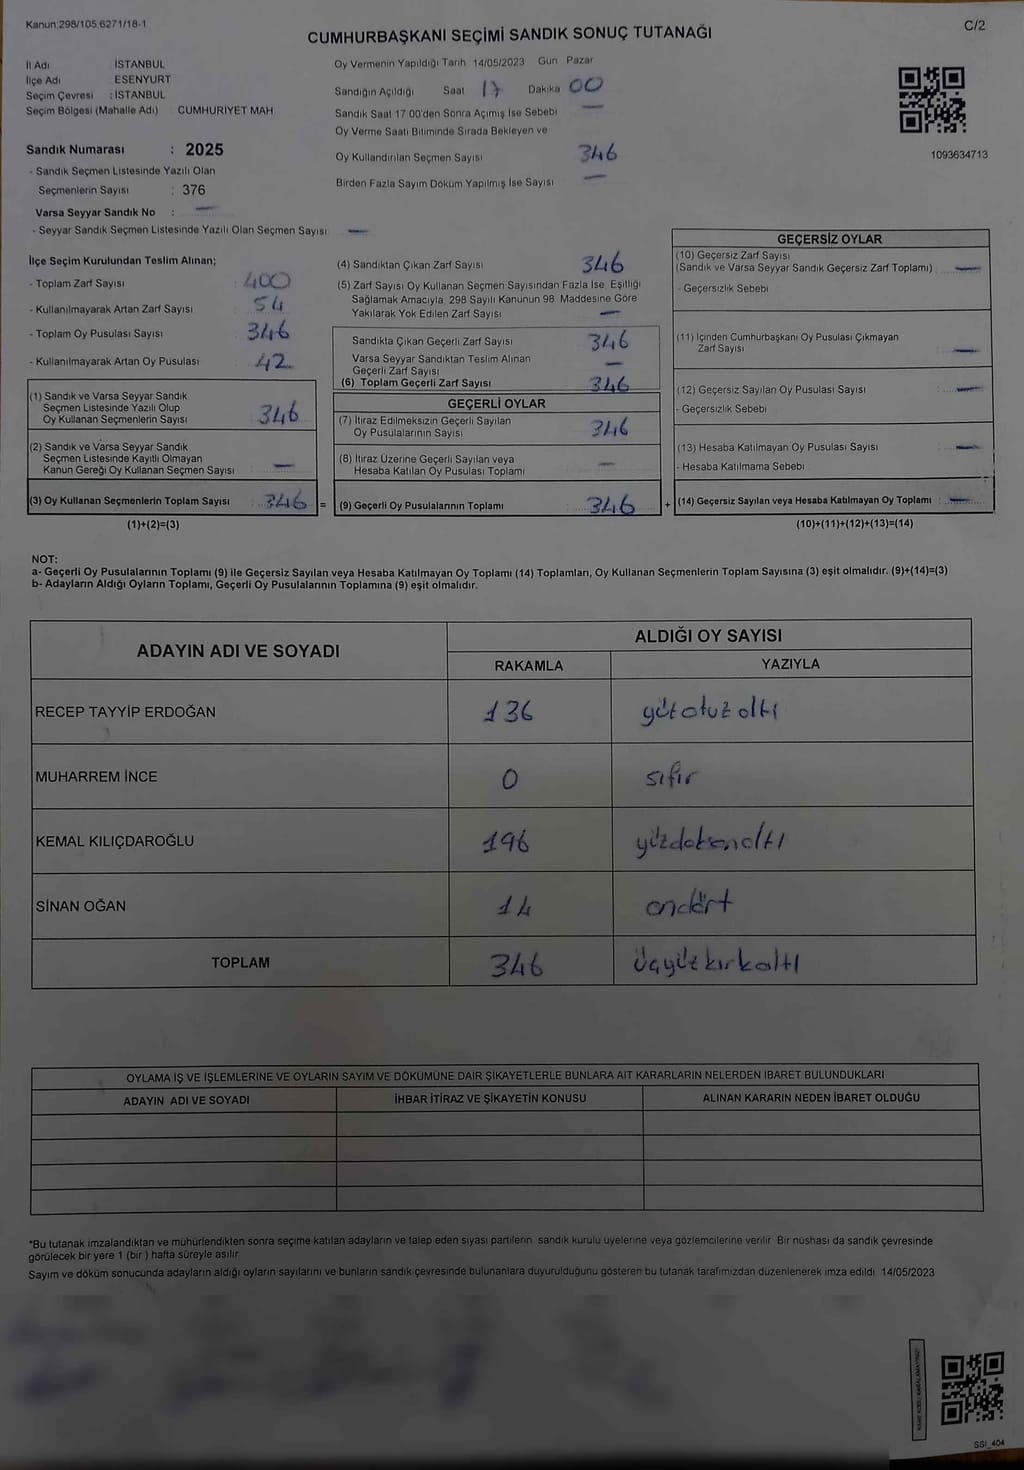 Kanun:298/105,6271/18-1
C/2
CUMHURBAŞKANI SEÇİMİ SANDIK SONUÇ TUTANAĞI
İl Adı İSTANBUL
İlçe Adı ESENYURT
Seçim Çevresi : İSTANBUL
Seçim Bölgesi (Mahalle Adı) CUMHURİYET MAH.
Oy Vermenin Yapıldığı Tarih 14/05/2023 Gün Pazar
Sandığın Açıldığı Saat 17 Dakika 00
Sandık Saat 17 00'den Sonra Açımış İse Sebebi —
Oy Verme Saati Bitiminde Sırada Bekleyen ve
Oy Kullandırılan Seçmen Sayısı 346
Birden Fazla Sayım Döküm Yapılmış İse Sayısı —
1093634713
Sandık Numarası : 2025
- Sandık Seçmen Listesinde Yazılı Olan
Seçmenlerin Sayısı : 376
Varsa Seyyar Sandık No : —
- Seyyar Sandık Seçmen Listesinde Yazılı Olan Seçmen Sayısı —
İlçe Seçim Kurulundan Teslim Alınan;
- Toplam Zarf Sayısı : 400
- Kullanılmayarak Artan Zarf Sayısı 54
- Toplam Oy Pusulası Sayısı 346
- Kullanılmayarak Artan Oy Pusulası 42
(1) Sandık ve Varsa Seyyar Sandık
Seçmen Listesinde Yazılı Olup
Oy Kullanan Seçmenlerin Sayısı 346
(2) Sandık ve Varsa Seyyar Sandık
Seçmen Listesinde Kayıtlı Olmayan
Kanun Gereği Oy Kullanan Seçmen Sayısı —
(3) Oy Kullanan Seçmenlerin Toplam Sayısı 346 =
(1)+(2)=(3)
(4) Sandıktan Çıkan Zarf Sayısı 346
(5) Zarf Sayısı Oy Kullanan Seçmen Sayısından Fazla İse, Eşitliği
Sağlamak Amacıyla, 298 Sayılı Kanunun 98. Maddesine Göre
Yakılarak Yok Edilen Zarf Sayısı —
Sandıkta Çıkan Geçerli Zarf Sayısı 346
Varsa Seyyar Sandıktan Teslim Alınan
Geçerli Zarf Sayısı —
(6) Toplam Geçerli Zarf Sayısı 346
GEÇERLİ OYLAR
(7) İtiraz Edilmeksizin Geçerli Sayılan
Oy Pusulalarının Sayısı 346
(8) İtiraz Üzerine Geçerli Sayılan veya
Hesaba Katılan Oy Pusulası Toplamı —
(9) Geçerli Oy Pusulalarının Toplamı 346 +
GEÇERSİZ OYLAR
(10) Geçersiz Zarf Sayısı
(Sandık ve Varsa Seyyar Sandık Geçersiz Zarf Toplamı) —
- Geçersizlik Sebebi
(11) İçinden Cumhurbaşkanı Oy Pusulası Çıkmayan
Zarf Sayısı —
(12) Geçersiz Sayılan Oy Pusulası Sayısı —
- Geçersizlik Sebebi
(13) Hesaba Katılmayan Oy Pusulası Sayısı —
- Hesaba Katılmama Sebebi
(14) Geçersiz Sayılan veya Hesaba Katılmayan Oy Toplamı : —
(10)+(11)+(12)+(13)=(14)
NOT:
a- Geçerli Oy Pusulalarının Toplamı (9) ile Geçersiz Sayılan veya Hesaba Katılmayan Oy Toplamı (14) Toplamları, Oy Kullanan Seçmenlerin Toplam Sayısına (3) eşit olmalıdır. (9)+(14)=(3)
b- Adayların Aldığı Oyların Toplamı, Geçerli Oy Pusulalarının Toplamına (9) eşit olmalıdır.
ADAYIN ADI VE SOYADI
ALDIĞI OY SAYISI
RAKAMLA YAZIYLA
RECEP TAYYİP ERDOĞAN 136 yüzotuzaltı
MUHARREM İNCE 0 sıfır
KEMAL KILIÇDAROĞLU 196 yüzdoksanaltı
SİNAN OĞAN 14 ondört
TOPLAM 346 üçyüzkırkaltı
OYLAMA İŞ VE İŞLEMLERİNE VE OYLARIN SAYIM VE DÖKÜMÜNE DAİR ŞİKAYETLERLE BUNLARA AİT KARARLARIN NELERDEN İBARET BULUNDUKLARI
ADAYIN ADI VE SOYADI İHBAR İTİRAZ VE ŞİKAYETİN KONUSU ALINAN KARARIN NEDEN İBARET OLDUĞU
*Bu tutanak imzalandıktan ve mühürlendikten sonra seçime katılan adayların ve talep eden siyasi partilerin sandık kurulu üyelerine veya gözlemcilerine verilir. Bir nüshası da sandık çevresinde
görülecek bir yere 1 (bir ) hafta süreyle asılır.
Sayım ve döküm sonucunda adayların aldığı oyların sayılarını ve bunların sandık çevresinde bulunanlara duyurulduğunu gösteren bu tutanak tarafımızdan düzenlenerek imza edildi. 14/05/2023
SSİ_404